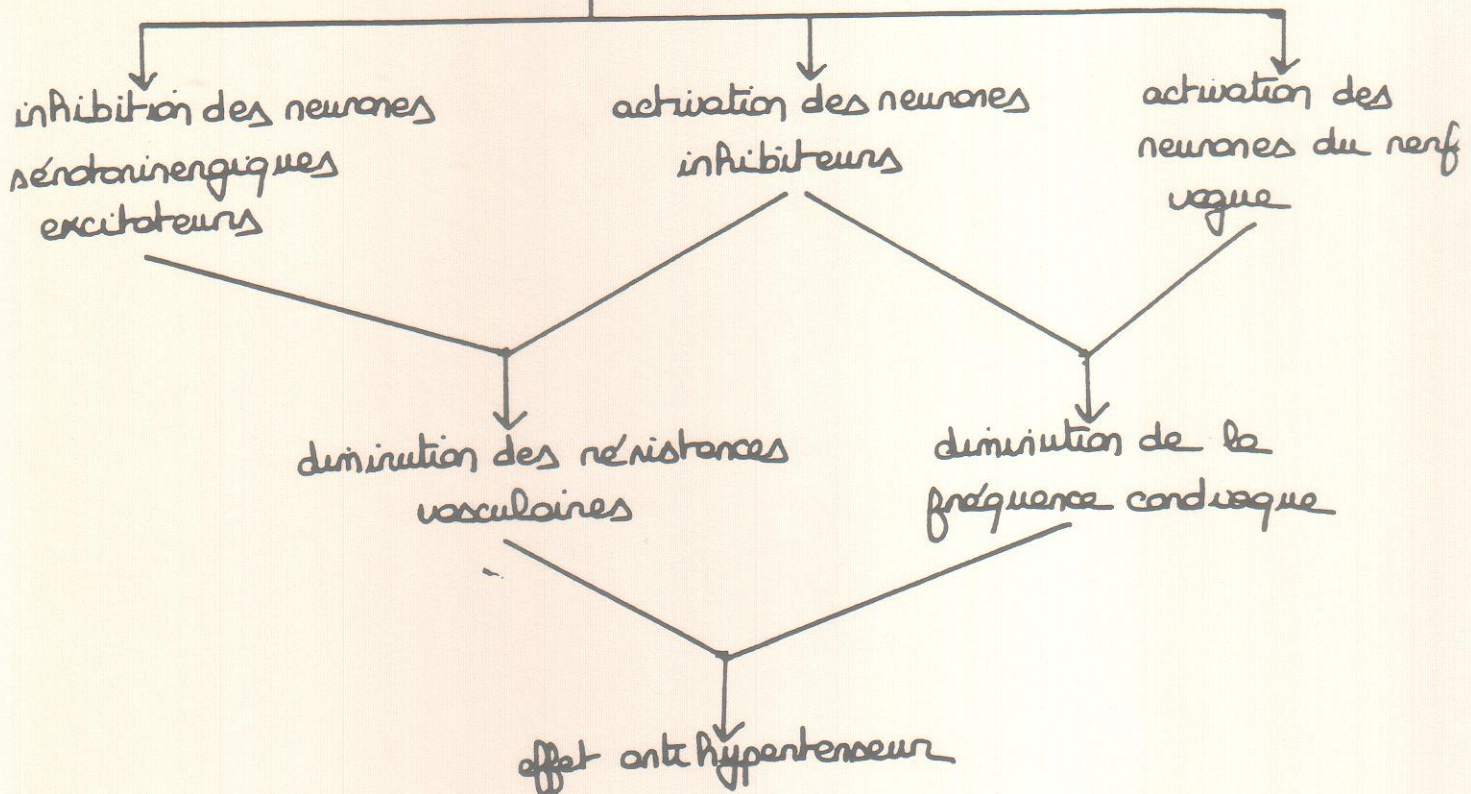 inhibition des neurones
sérotoninergiques
excitateurs
activation des neurones
inhibiteurs
activation des
neurones du nerf
vague
diminution des résistances
vasculaires
diminution de la
fréquence cardiaque
effet anti hypertenseur